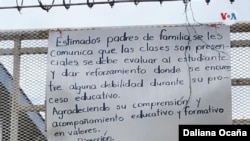 VOA
Estimados padres de familia, se les
comunica que las clases son presen-
ciales se debe evaluar al estudiante
y dar reforzamiento donde se encuen
tre alguna debilidad durante su pro
ceso educativo.
Agradeciendo su comprensión y
acompañamiento educativo y formativo
en valores.
Dirección
Daliana Ocaña